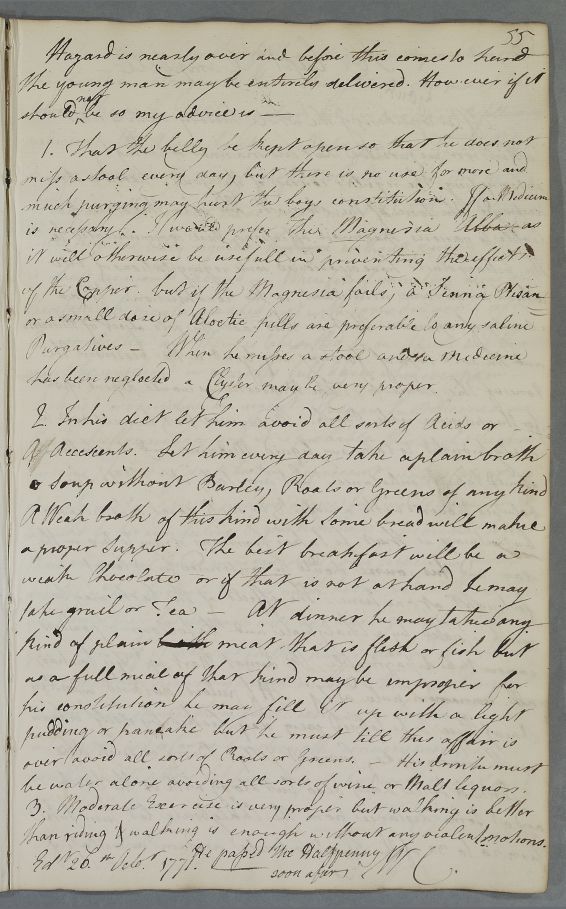 55
Hazard is nearly over and before this comes to hand
the young man may be entirely delivered. However if it
should not be so my advice is —
1. That the belly be kept open so that he does not
miss a stool every day, but there is no use for more and
much purging may hurt the boys constitution. If a Medicine
is necessary. I would prefer the Magnesia Alba as
it will otherwise be usefull in preventing the effects
of the Copper. but if the Magnesia fails, a Senna Ptisan
or a small dose of Aloetic pills are preferable to any saline
Purgatives — When he misses a stool and a medicine
has been neglected a Clyster may be very proper.
2. In his diet let him avoid all sorts of Acids or —
Accescents. Let him every day take a plain broth
or soup without Barley, Roots or Greens of any kind
A Weak broth of this kind with some bread will make
a proper Supper. The best breakfast will be a
weak Chocolate or if that is not at hand he may
take gruil or Tea — At dinner he may take any
kind of plain meat that is flesh or fish but
as a full meal of that kind may be improper for
his constitution he may fill it up with a light
pudding or pancake but he must till this affair is
over avoid all sorts of Roots or Greens. — His drink must
be water alone avoiding all sorts of wine or Malt liquors.
3. Moderate Exercise is very proper but walking is better
than riding & walking is enough without any violent motions.
Edr. 20th Octobr. 1771. He passed the Halfpenny W C.
soon after